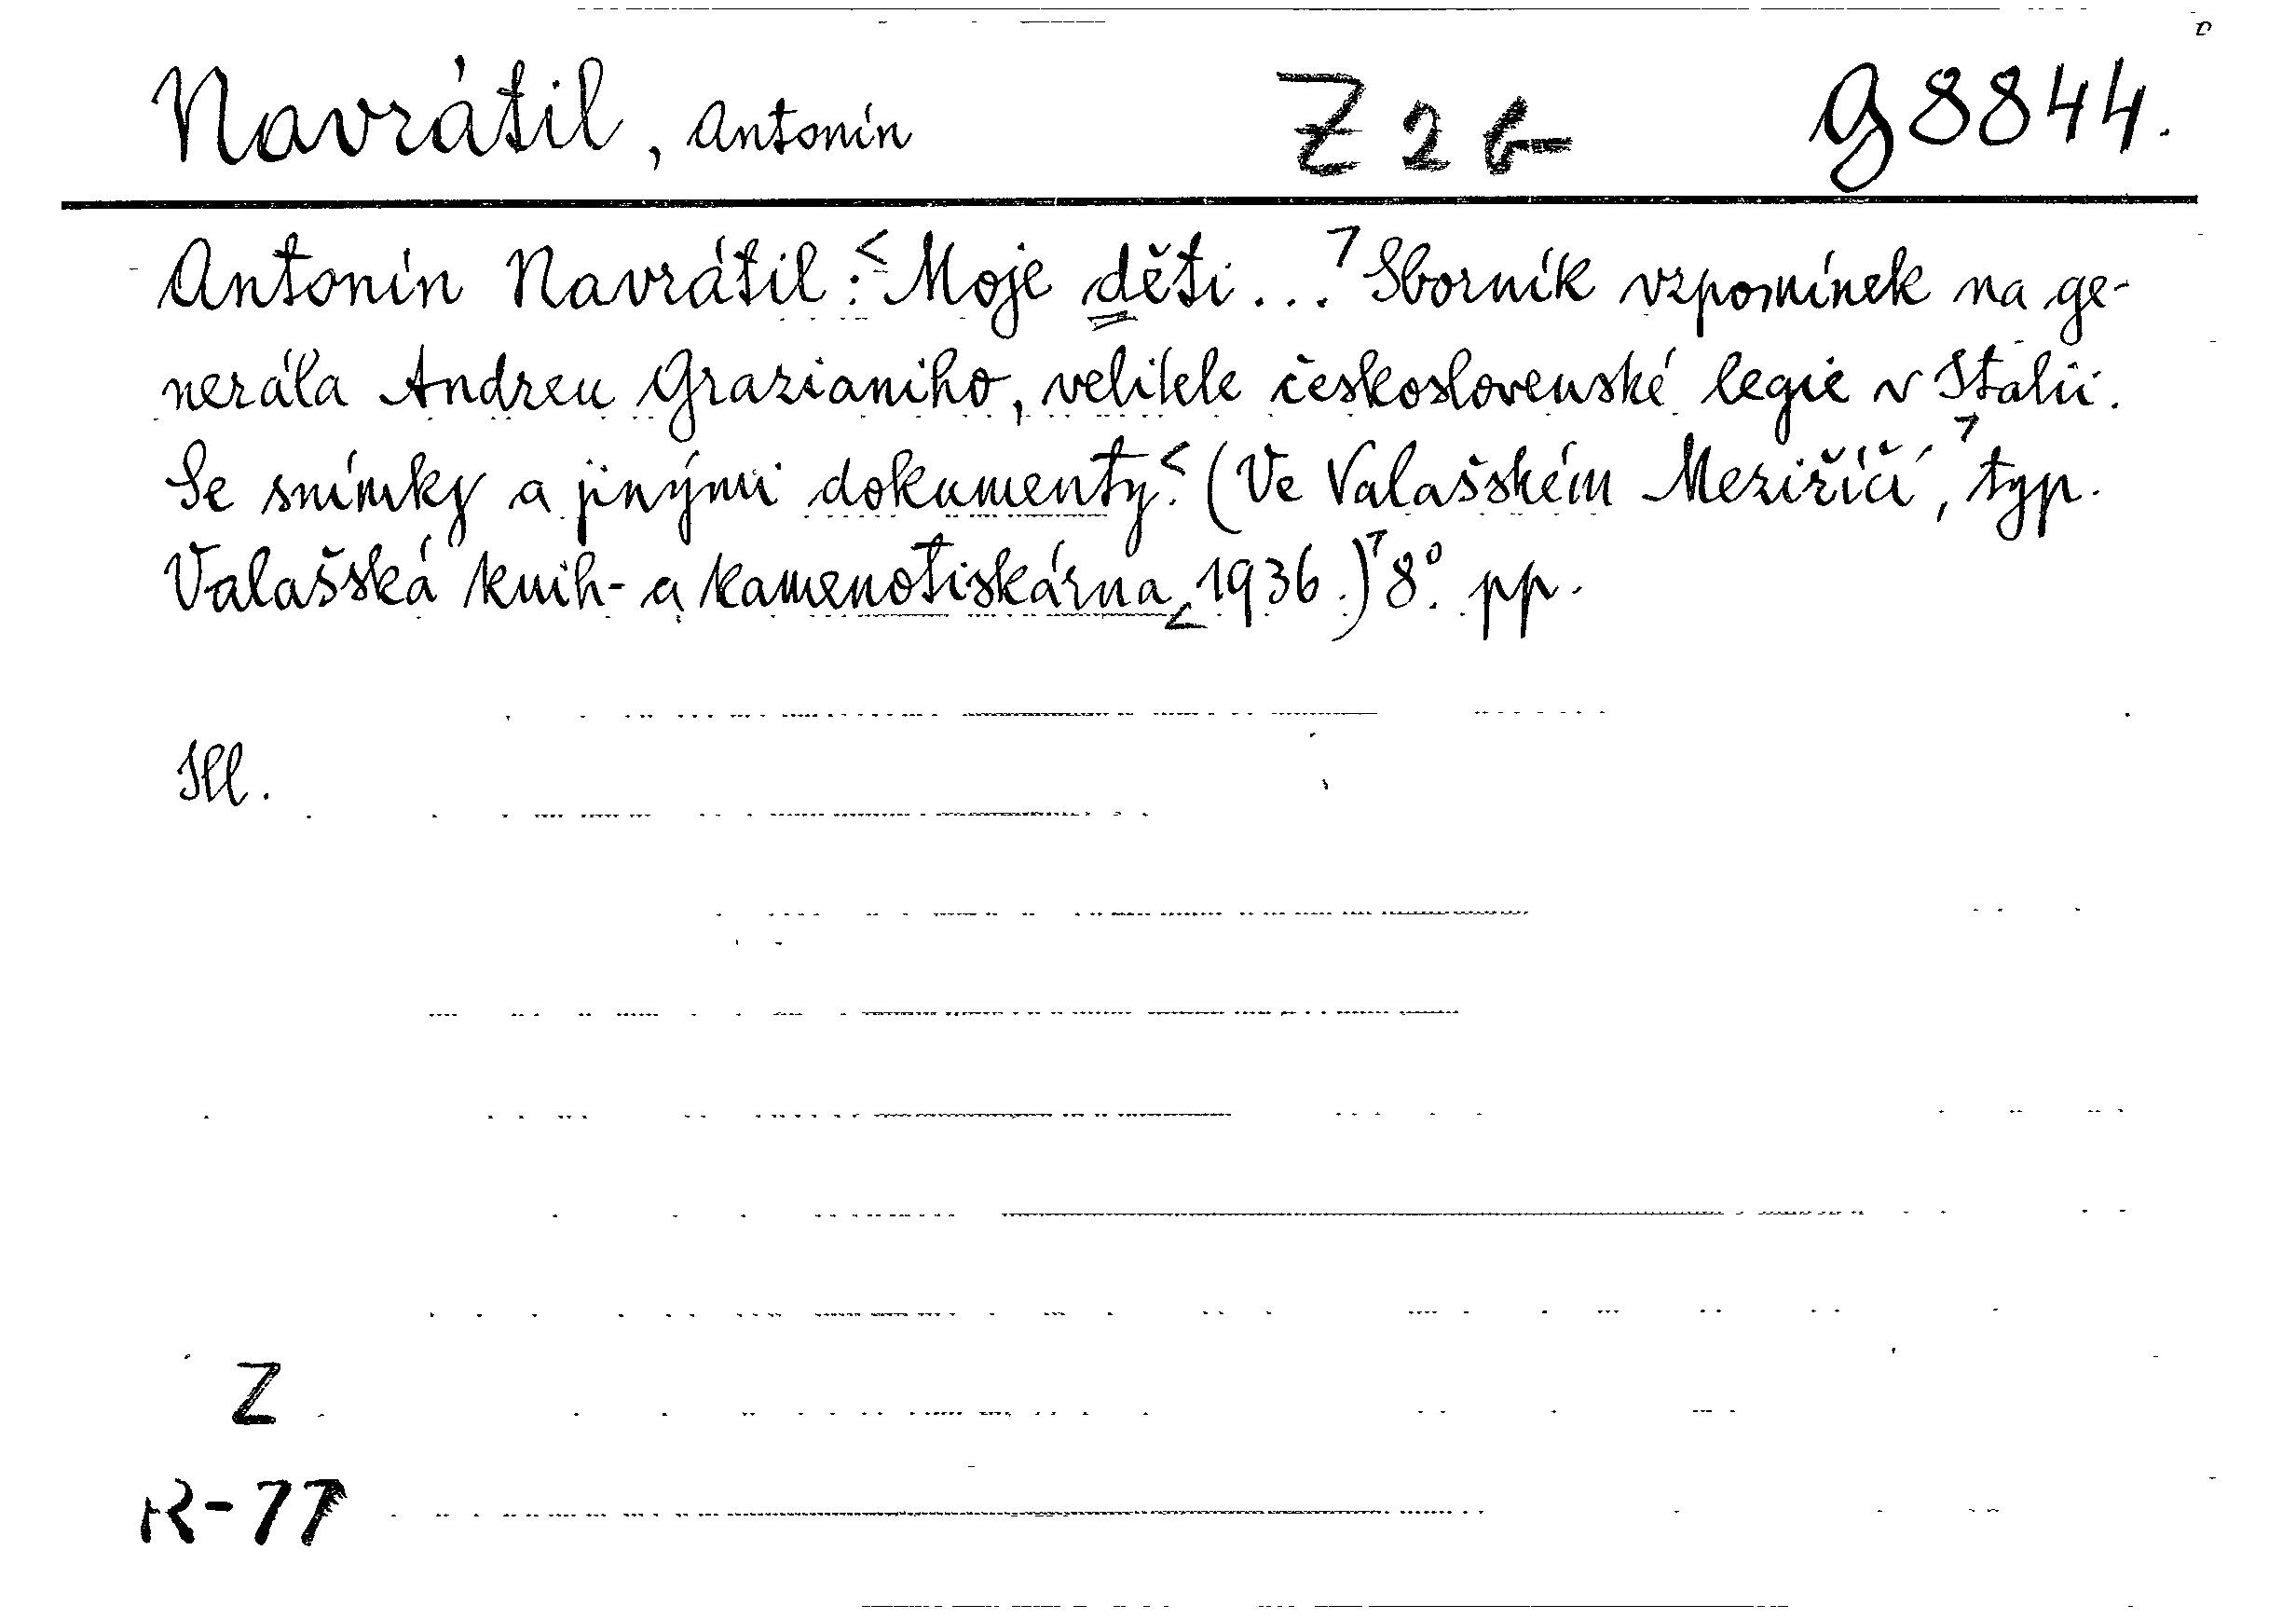 Navrátil, Antonín Z 26- G 8844.
Antonín Navrátil: <Moje děti...> Sborník vzpomínek na ge-
nerála Andreu Grazianiho, velitele československé legie v Italii.
Se snímky a jinými dokumenty.< (Ve Valašském Meziříčí,> typ.
Valašská knih- a kamenotiskárna < 1936.)> 8°. pp.
Ill.
Z
R-77